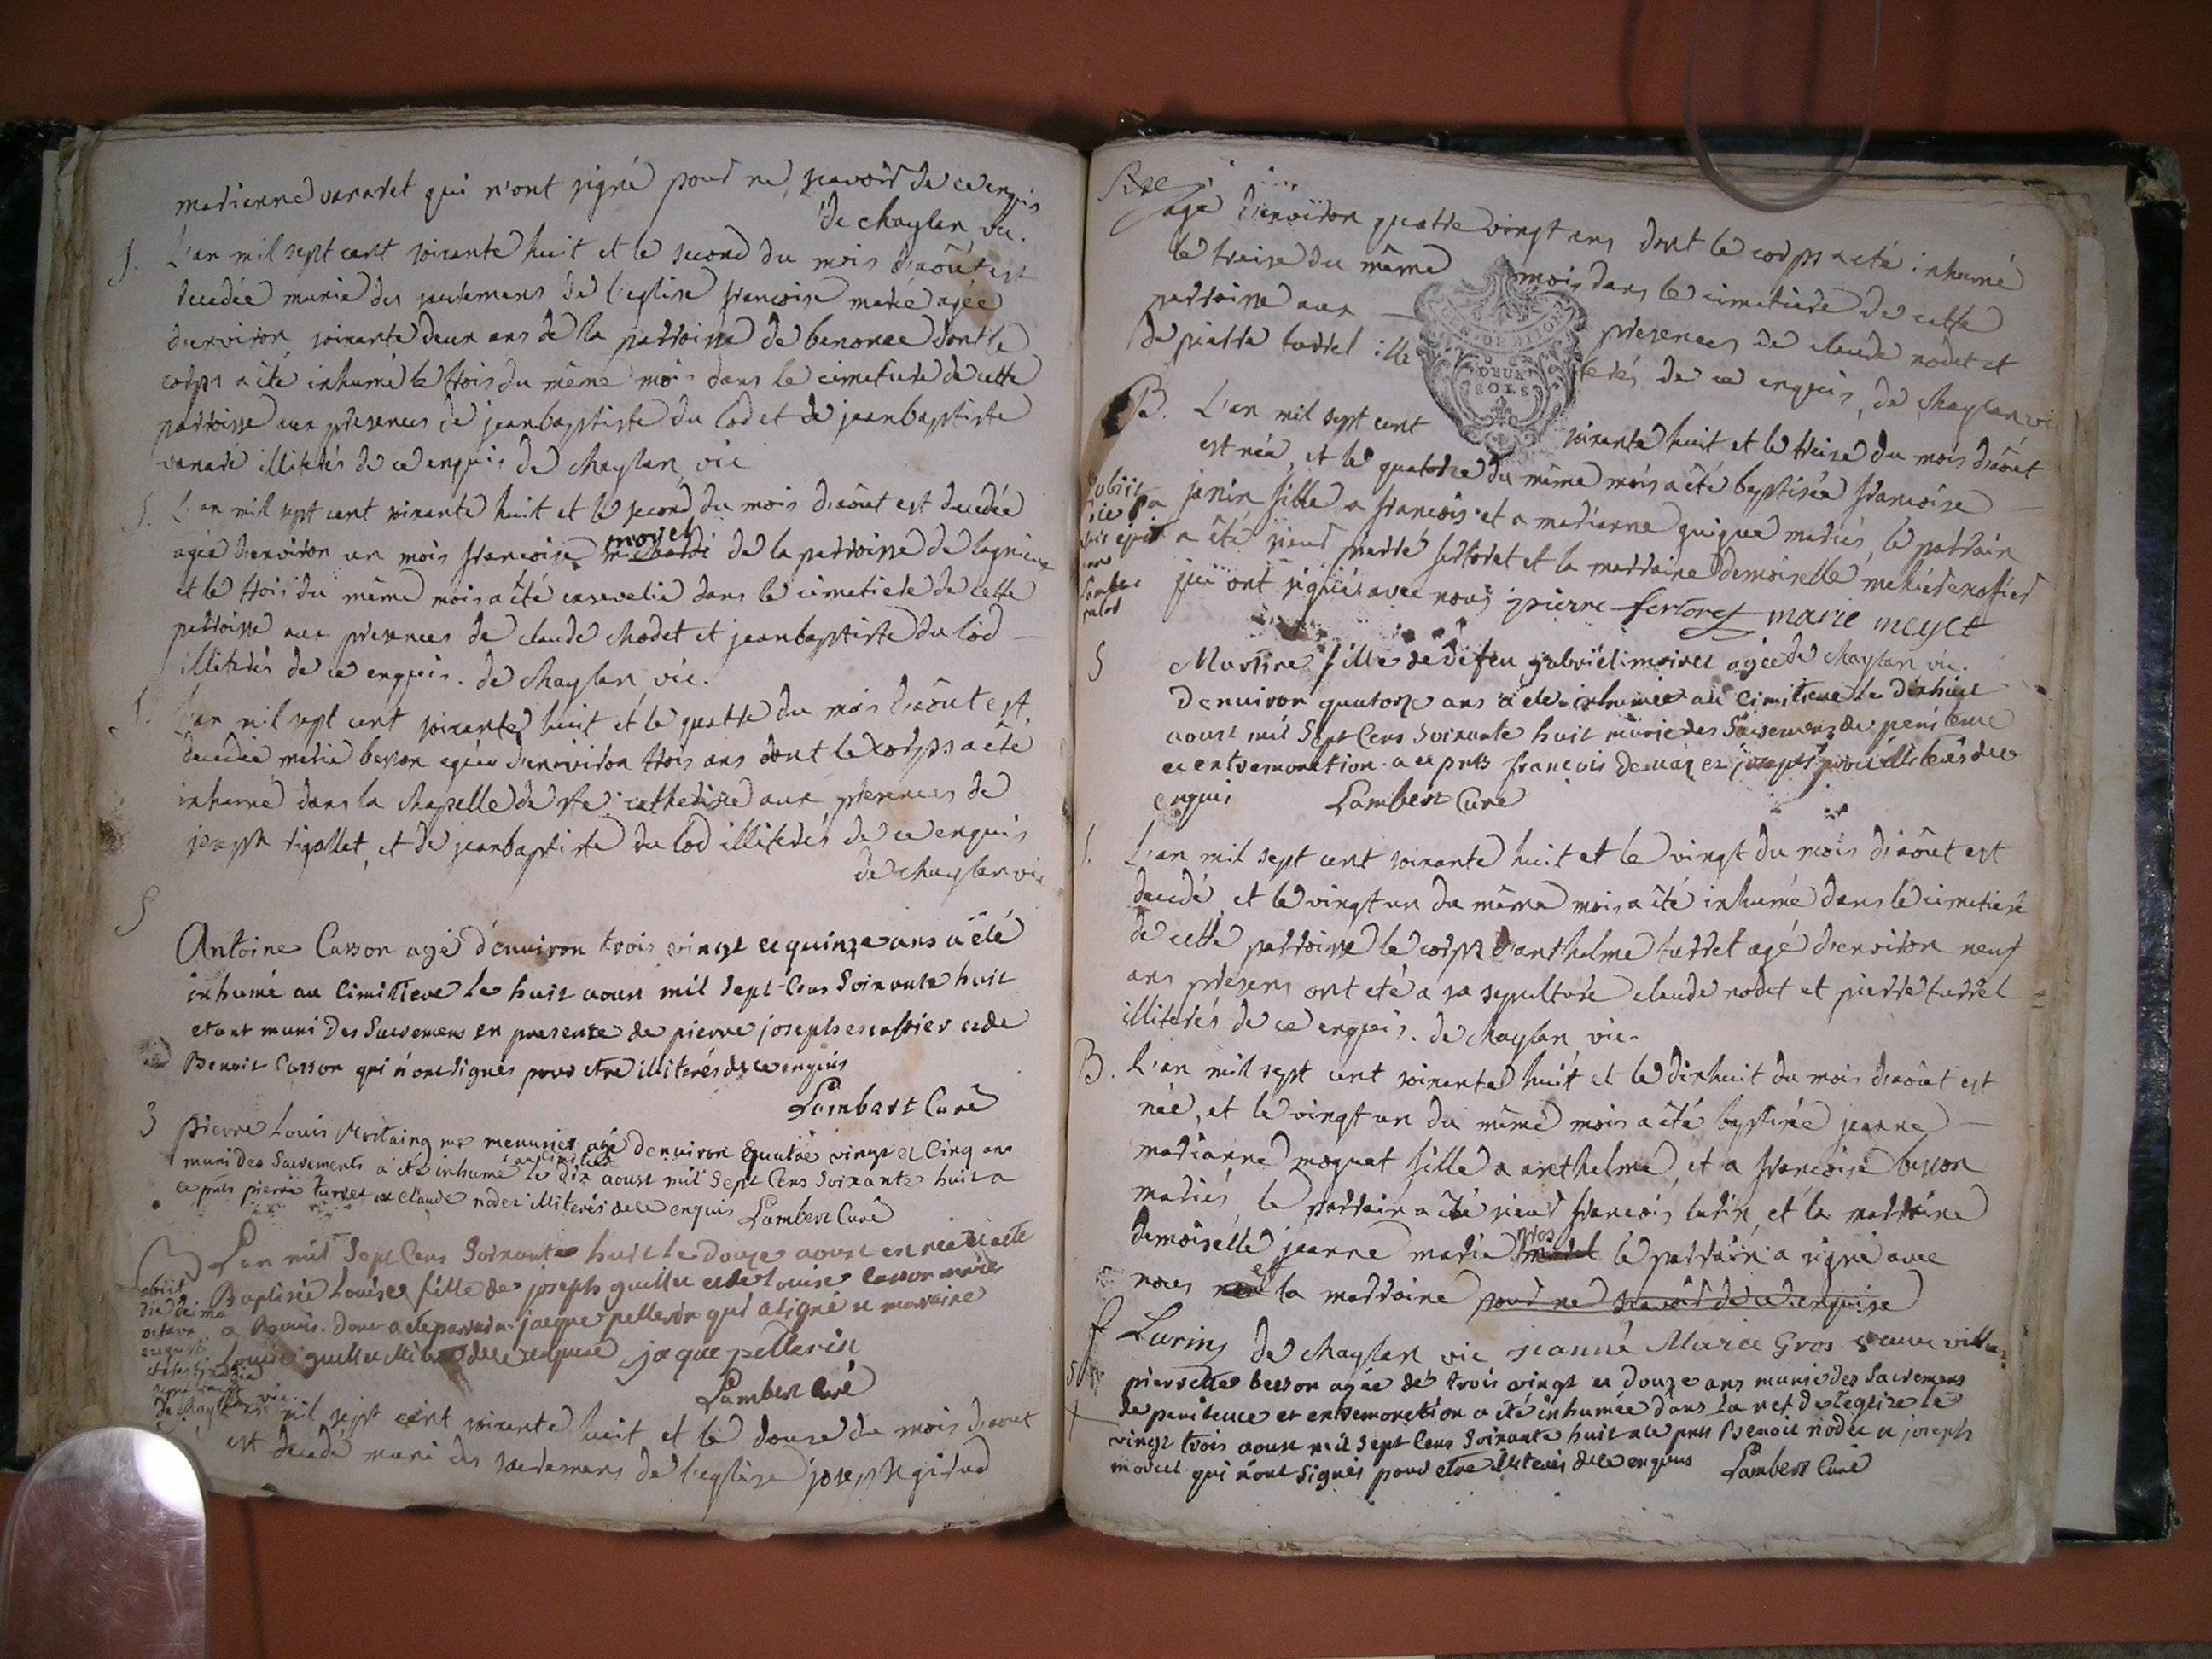 marianne vanaret qui n'ont signé pour ne scavoir de ce enquis
de chaylan vic.
S. L'an mil sept cent soixante huit et le second du mois d'août est
decedée munie des sacremens de l'eglise francoise marié agée
d'environ soixante deux ans de la parroisse de benonce dont le
corps a été inhumé le trois du même mois dans le cimetiere de cette
parroisse aux presences de jeanbaptiste du lod et de jeanbaptiste
vanare illiterés de ce enquis de chaylan vic
S. L'an mil sept cent soixante huit et le second du mois d'août est decedée
agée d'environ un mois francoise moyet de la parroisse de lagnieux
et le trois du même mois a été ensevelie dans le cimetiere de cette
parroisse aux presences de claude chodet et jeanbaptiste du lod
illiterés de ce enquis. de chaylan vic.
S. L'an mil sept cent soixante huit et le quattre du mois d'août est
decedée marie besson agée d'environ trois ans dont le corps a été
inhumé dans la chapelle de ste catherine aux presences de
joseph rigollet, et de jeanbaptiste du lod illiterés de ce enquis
de chaylan vic
S
Antoine Casson agé d'environ trois vingt et quinze ans a été
inhumé au Cimitiere le huit aoust mil sept Cens Soixante huit
etant muni des Sacremens en presence de pierre joseph escoffier et de
Benoit Casson qui n'ont signés pour etre illiterés de ce enquis
Lambert Curé
S pierre Louis me menusier agé d'environ quatre vingt et Cinq ans
muni des Sacrements a été inhumé au cimitiere le dix aoust mil Sept Cens Soixante huit a
ce pnts pierre turret et claude nodet illiterés de ce enquis Lambert Curé
B L'an mil Sept Cens Soixante huit le douze aoust est née et a été
Baptisée Louise fille de joseph guillet et de Louise Casson mariés
a dont a été parrain jacque pellerin qui a signé et marraine
Louise guillet illiterée de ce enquise jaque pellerin
Lambert Curé
obiit
die decima
octava
augusti
de chaylan vic.
L'an mil sept cent soixante huit et le douze du mois d'aout
est decedé muni des sacremens de l'eglise joseph girud
agé d'environ quatre vingt ans dont le corps a été inhumé
le treize du même mois dans le cimetiere de cette
parroisse aux presences de claude nodet et
de piarre turrel illiterés de ce enquis, de chaylan vic
GEN. DE DIJON
DEUX
SOLS
B. L'an mil sept cent soixante huit et le treize du mois d'août
est née, et le quatorze du même mois a été baptisée francoise
janin fille a francois et a marianne guigue mariés, le parrain
a été sieur piarre fertoret et la marraine demoiselle
qui ont signés avec nous pierre fertoret marie meyet
obiit
S Martine fille de défeu gabriel moiret agée de chaylan vic.
d'environ quatorze ans a été inhumée au Cimitiere le dixhuit
aoust mil Sept Cens Soixante huit munie des Sacremens de penitence
et extremonction a ce pnts françois et joseph illiterés de ce
enquis Lambert Curé
S. L'an mil sept cent soixante huit et le vingt du mois d'août est
decedé, et le vingt un du même mois a été inhumé dans le cimetiere
de cette parroisse le corps d'anthelme turret agé d'environ neuf
ans présens ont été a sa sepulture claude nodet et pierre turrel
illiterés de ce enquis. de chaylan vic.
B. L'an mil sept cent soixante huit et le dixhuit du mois d'août est
née, et le vingt un du même mois a été baptisée jeanne
marianne moguet fille a anthelme, et a francoise besson
mariés, le parrain a été sieur francois lurin, et la marraine
demoiselle jeanne marie gros le parrain a signé avec
nous et la marraine pour ne scavoir de ce enquise
Lurins de chaylan vic jeanne Marie Gros
S pierrette besson agée de trois vingt et douze ans munie des Sacremens
de penitence et extremonction a été inhumée dans la nef de l'eglize le
vingt trois aoust mil sept Cens Soixante huit a ce pnts Benoit nodet et joseph
moiret qui n'ont signés pour etre illiterés de ce enquis Lambert Curé